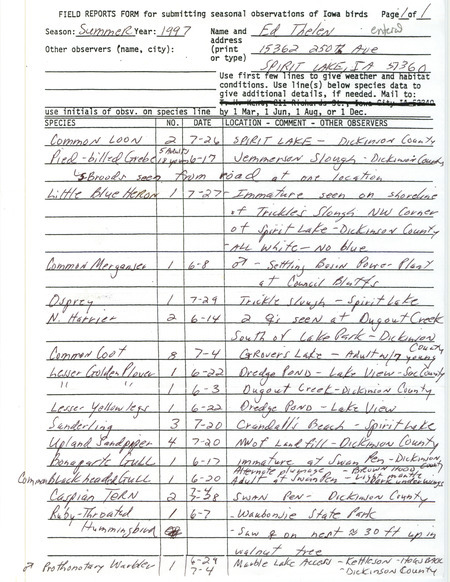 FIELD REPORTS FORM for submitting seasonal observations of Iowa birds Page 1 of 1
Season: Summer Year: 1997 Name and Ed Thelen entered
address 15362 250th Ave
Other observers (name, city): (print
or type) SPIRIT LAKE, IA 51360
Use first few lines to give weather and habitat
conditions. Use line(s) below species data to
give additional details, if needed. Mail to:
use initials of obsv. on species line by 1 Mar, 1 Jun, 1 Aug, or 1 Dec.
SPECIES NO. DATE LOCATION - COMMENT - OTHER OBSERVERS
Common Loon 2 7-26 SPIRIT LAKE - Dickinson County
Pied-billed Grebe 5 Adults 18 young 6-17 Jemmerson Slough - Dickinson County
5 Broods seen from road at one location
Little Blue HERON 1 7-27 - Immature seen on shoreline
of Trickles Slough NW Corner
of Spirit Lake - Dickinson County
- ALL White - No blue
Common Merganser 1 6-8 ♂ - Settling Basin Power Plant
at Council Bluffs
Osprey 1 7-29 Trickle Slough - Spirit Lake
N. Harrier 2 6-14 2 ♀s seen at Dugout Creek
South of Lake Park - Dickinson County
Common Coot 8 7-4 Grovers Lake - Adult w/7 young
Lesser Golden Plover 1 6-22 Dredge POND - Lake View - Sac County
" " 1 6-3 Dugout Creek - Dickinson County
Lesser Yellowlegs 1 6-22 Dredge POND - Lake View
Sanderling 3 7-20 Crandall's Beach - Spirit Lake
Upland Sandpiper 4 7-20 NW of Landfill - Dickinson County
Bonaparte Gull 6-17 immature at Swan Pen - Dickinson County
Alternate plumage - BROWN HOOD
Common Black headed Gull 1 6-20 Adult at Swan Pen - 
Caspian TERN 2 SWAN Pen - Dickinson County
Ruby-Throated 1 6-7 - Waubonsie State Park
Hummingbird - Saw ♀ on nest ≈ 30 ft up in
walnut tree
♂ Prothonotary Warbler 1 6-29 Marble Lake Access - Kettleson - HOGSBACK
7-4 - Dickinson County